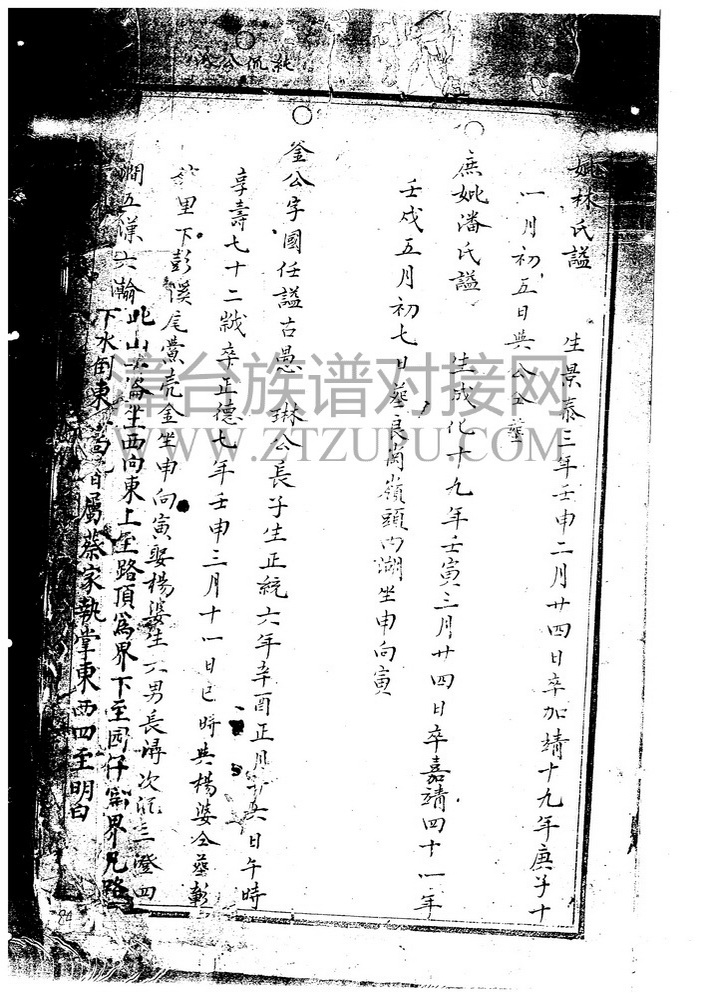 妣林氏謚 生景泰三年壬申二月廿四日卒加靖十九年庚子十
一月初五日與公仝塟
庶妣潘氏謚 生成化十九年壬寅三月廿四日卒嘉靖四十一年
壬戌五月初七日塟良崗嶺頭內湖坐申向寅
釜公字國任謚古愚 琳公長子生正統六年辛酉正月十六日午時
享壽七十二歲卒正德七年壬申三月十一日巳時與楊婆仝塟彭
里下彭溪尾黨売金坐申向寅娶楊婆生六男長潯次沅三澄四
澗五漢六瀚
此山 崙坐西向東上至路頂為界下至园仔 界兄路
下水倒東 皆屬蔡家執掌東西四至明白
漳台族谱对接网
WWW.ZTZUPU.COM